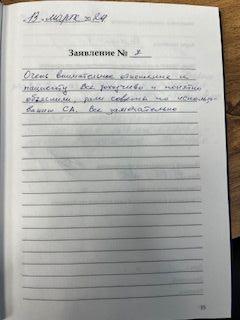 13 марта 2024
Заявление № 7
Очень внимательное отношение к
пациенту. Все доходчиво и понятно
объяснили, дали советы по использо-
ванию СА. Все замечательно